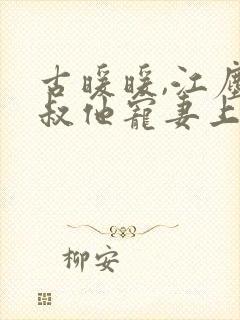 古暖暖,江尘
叔他宠妻上
柳安